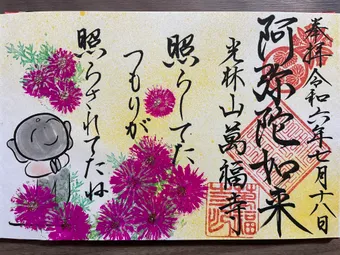 奉拝 令和六年七月十八日
阿弥陀如来
光林山萬福寺
照らしてた
つもりが
照らされてたね
萬福